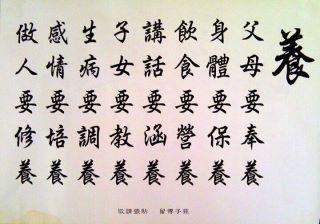 養
父母要奉養
身體要保養
飲食要營養
講話要涵養
子女要教養
生病要調養
感情要培養
做人要修養
敬請張貼 留傳子孫